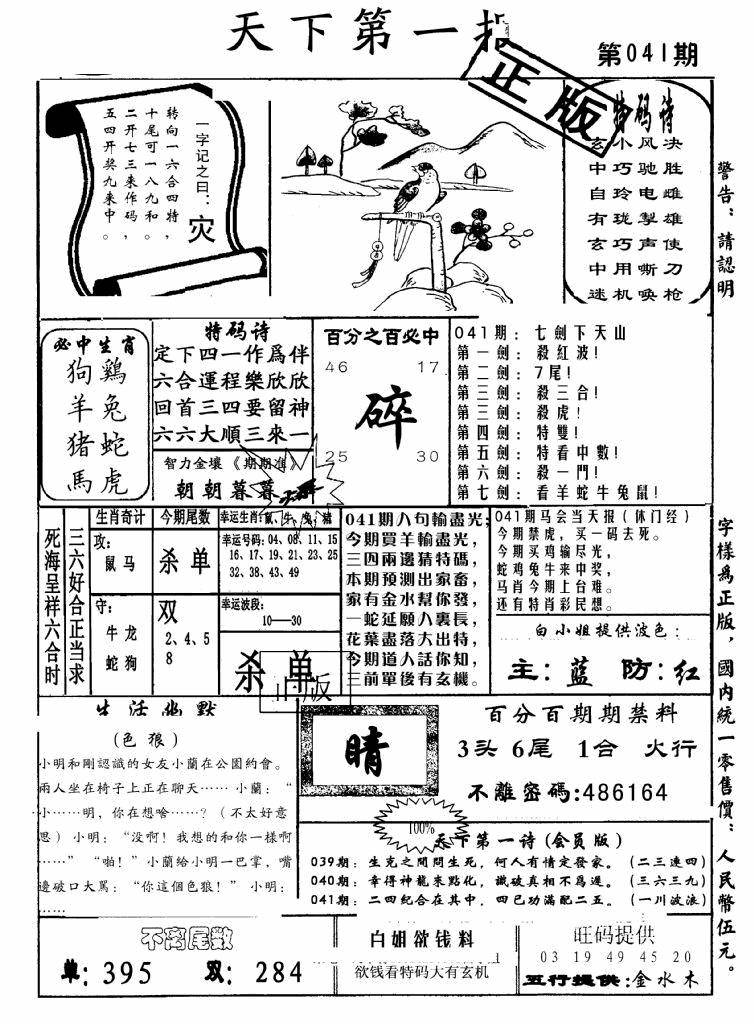 天下第一
第041期
正版
一字记之曰：灾
转向一六合四特，
十尾可一八九和。
二开七三来作码，
五四开奖九来中。
特码诗
玄小风决
中巧驰胜
自玲电雌
有珑掣雄
玄巧声使
中用嘶刀
迷机唤枪
警告：請認明
字樣為正版，國内統一零售價：人民幣伍元。
必中生肖
狗鷄
羊兔
猪蛇
馬虎
特码诗
定下四一作爲伴
六合運程樂欣欣
回首三四要留神
六六大順三來一
智力金壤《期期准》
朝朝暮暮
百分之百必中
46 17
碎
25 30
041期：七劍下天山
第一劍：殺紅波！
第二劍：7尾！
第三劍：殺三合！
第三劍：殺虎！
第四劍：特雙！
第五劍：特看中數！
第六劍：殺一門！
第七劍：看羊蛇牛兔鼠！
死海呈祥六合时
三六好合正当求
生肖奇计
攻：
鼠马
守：
牛龙
蛇狗
今期尾数
杀单
双
2、4、5
8
幸运生肖：鼠、牛、兔、猪
幸运号码：04、08、11、15
16、17、19、21、23、25
32、38、43、49
幸运波段：
10—30
杀单
正版
041期八句輸盡光；
今期買羊輸盡光，
三四兩邊猜特碼，
本期預測出家畜，
家有金水幫你發，
一蛇延願入裏長，
花葉盡落大出特，
今期道人話你知，
三前單後有玄機。
041期马会当天报（休门经）
今期禁虎，买一码去死。
今期买鸡输尽光，
蛇鸡兔牛来中奖，
马肖今期上台难。
还有特肖彩民想。
白小姐提供波色：
主：蓝 防：红
生活幽默
（色狼）
小明和剛認識的女友小蘭在公園約會。
兩人坐在椅子上正在聊天…… 小蘭：“
小……明，你在想啥……？（不太好意
思）小明：“没啊！我想的和你一樣啊
……” “啪！”小蘭给小明一巴掌，嘴
邊破口大罵：“你這個色狼！”小明：
……
晴
100%
百分百期期禁料
3头 6尾 1合 火行
不離密碼:486164
天下第一诗(会员版)
039期：生克之間問生死，何人有情定發家。（二三连四）
040期：幸得神龍来點化，識破真相不爲遲。（三六三九）
041期：二四紀合在其中，四已功滿配二五。（一川波浪）
不离尾数
单：395 双：284
白姐欲钱料
欲钱看特码大有玄机
旺码提供
03 19 49 45 20
五行提供：金水木